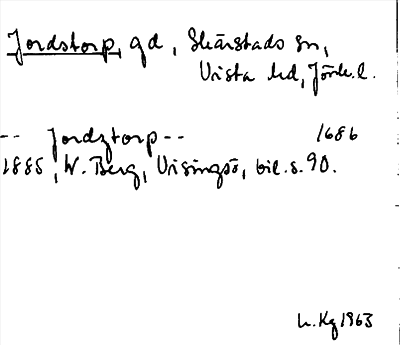 Jordstorp, gd, Skärstads sn,
Vista hd, Jönk. l.
-- Jordztorp -- 1686
1885, W. Berg, Visingsö, bil. s. 90.
L. Kg 1963